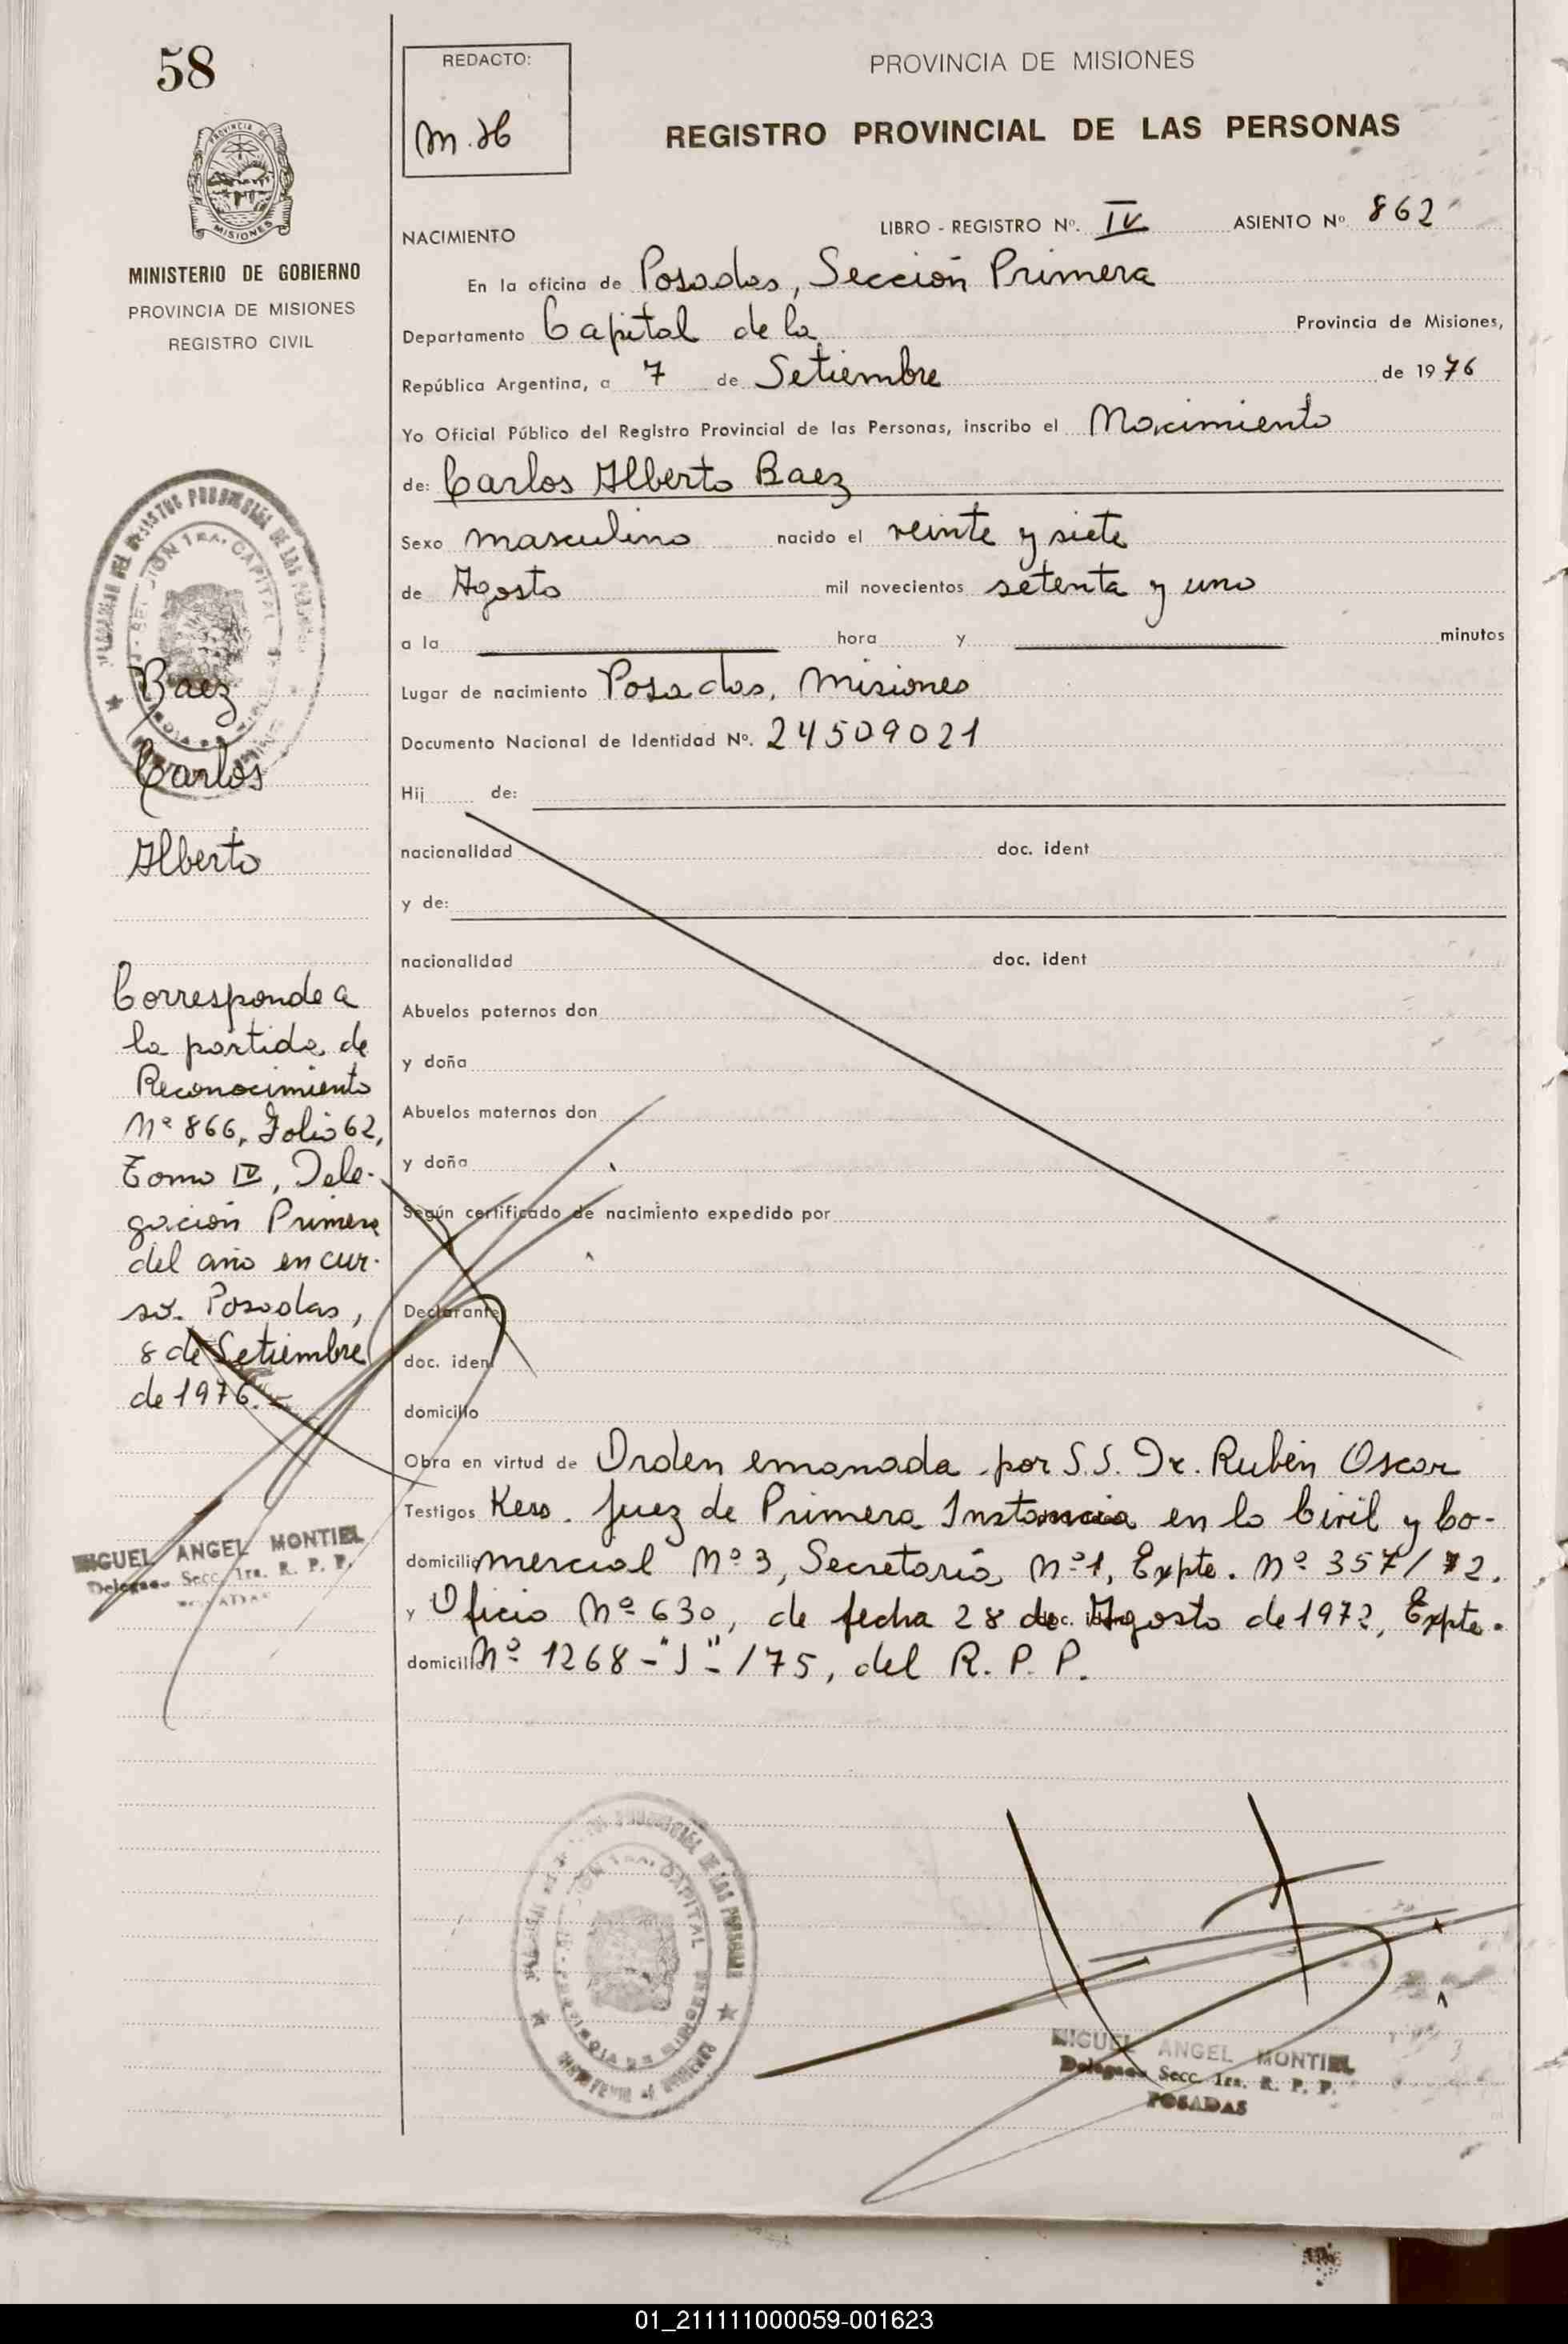 58
REDACTO:
M.H
PROVINCIA DE MISIONES
REGISTRO PROVINCIAL DE LAS PERSONAS
MISIONES
MINISTERIO DE GOBIERNO
PROVINCIA DE MISIONES
REGISTRO CIVIL
NACIMIENTO LIBRO - REGISTRO Nº. IV ASIENTO Nº. 862
En la oficina de Posadas, Sección Primera
Departamento Capital de la Provincia de Misiones,
República Argentina, a 7 de Setiembre de 1976
Yo Oficial Público del Registro Provincial de las Personas, inscribo el Nacimiento
de: Carlos Alberto Baez
Sexo masculino nacido el veinte y siete
de Agosto mil novecientos setenta y uno
a la hora y minutos
Lugar de nacimiento Posadas, Misiones
Documento Nacional de Identidad Nº. 24509021
Hij de:
nacionalidad doc. ident
y de:
nacionalidad doc. ident
Abuelos paternos don
y doña
Abuelos maternos don
y doña
Según certificado de nacimiento expedido por
Declarante
doc. ident
domicilio
Obra en virtud de Orden emanada por S.S. Dr. Rubén Oscar
Testigos Juez de Primera Instancia en lo Civil y Co-
domicilio mercial Nº 3, Secretaría Nº 1, Expte. Nº 357/72.
y Oficio Nº 630, de fecha 28 de Agosto de 1972, Expte.
domicilio Nº 1268-"J"-/75, del R. P. P.
Baez
Carlos
Alberto
Corresponde a
la partida de
Reconocimiento
Nº 866, Folio 62,
Tomo IV, Dele-
gación Primera
del año en cur-
so. Posadas,
8 de Setiembre
de 1976.-
MIGUEL ANGEL MONTIEL
Delegado Secc. 1ra. R. P. P.
POSADAS
MIGUEL ANGEL MONTIEL
Delegado Secc. 1ra. R. P. P.
POSADAS
01_211111000059-001623